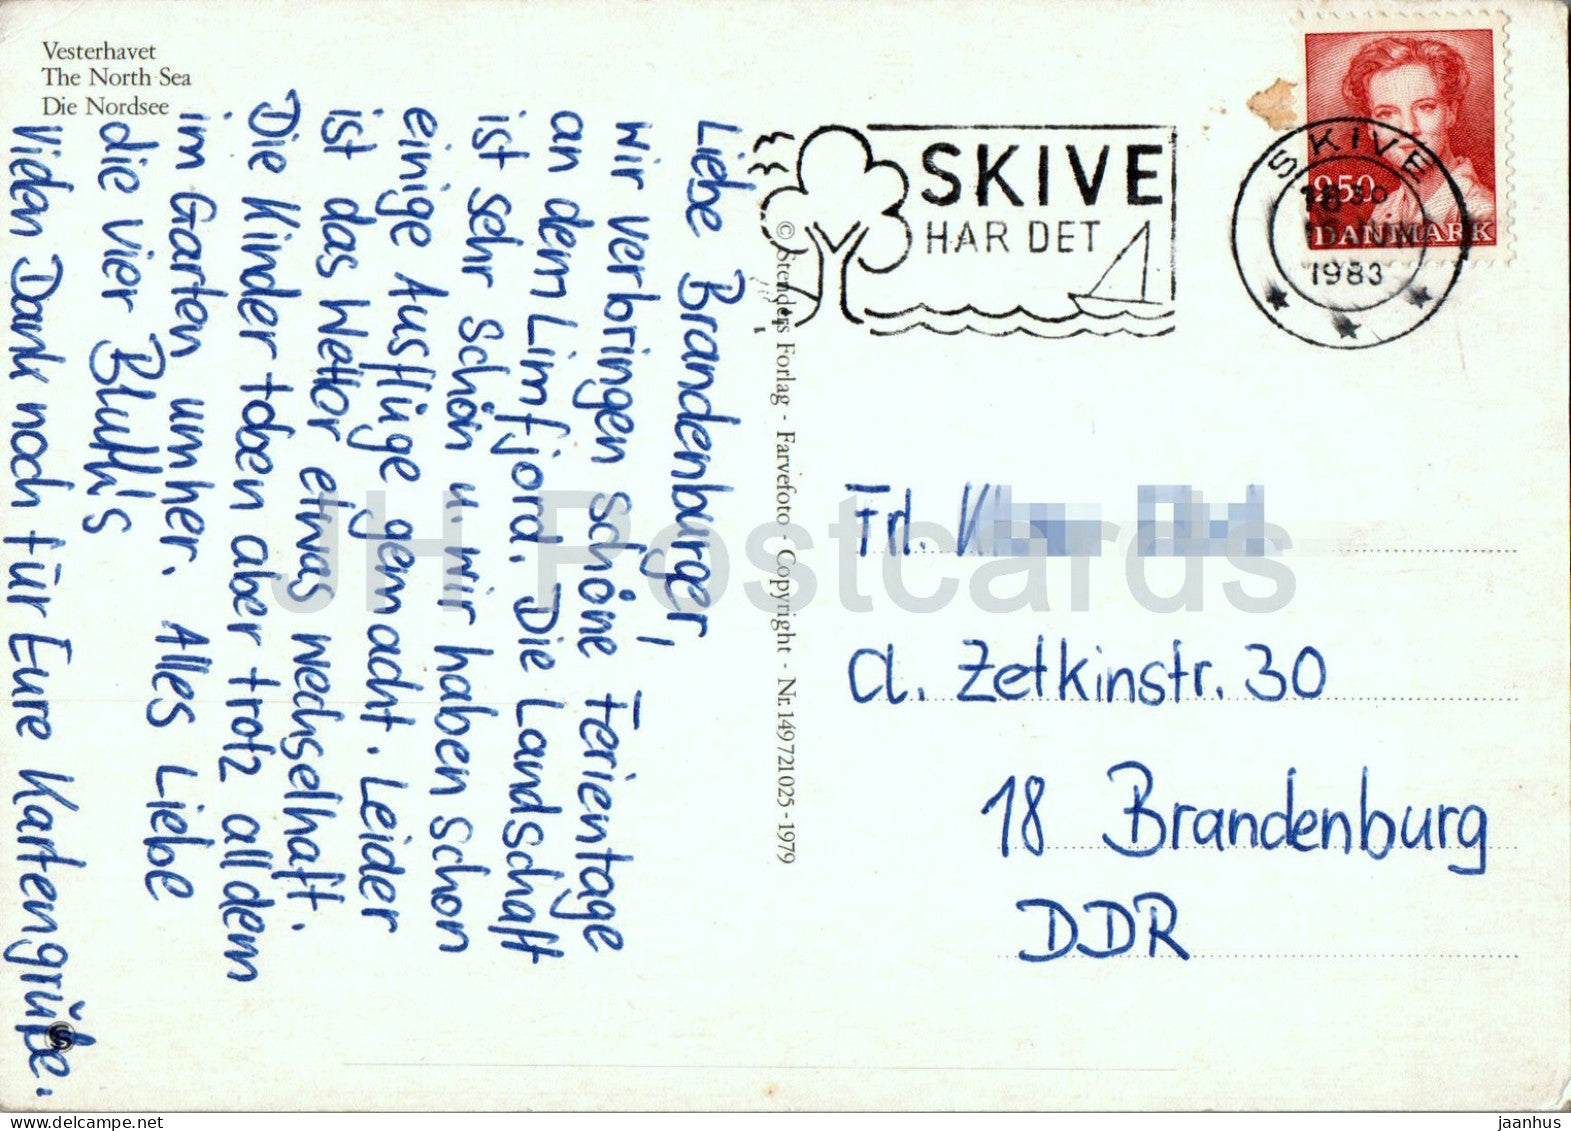 Vesterhavet
The North Sea
Die Nordsee
Liebe Brandenburger,
wir verbringen schöne Ferientage
an dem Limfjord. Die Landschaft
ist sehr schön u. wir haben schon
einige Ausflüge gemacht. Leider
ist das Wetter etwas wechselhaft.
Die Kinder toben aber trotz all dem
im Garten umher. Alles Liebe
die vier Bluth's
Vielen Dank noch für Eure Kartengrüße.
© Stenders Forlag - Farvefoto - Copyright - Nr. 149721025 - 1979
SKIVE
HAR DET
SKIVE
1983
DANMARK
Frl.
Cl. Zetkinstr. 30
18 Brandenburg
DDR
JH Postcards
delcampe.net
jaanhus